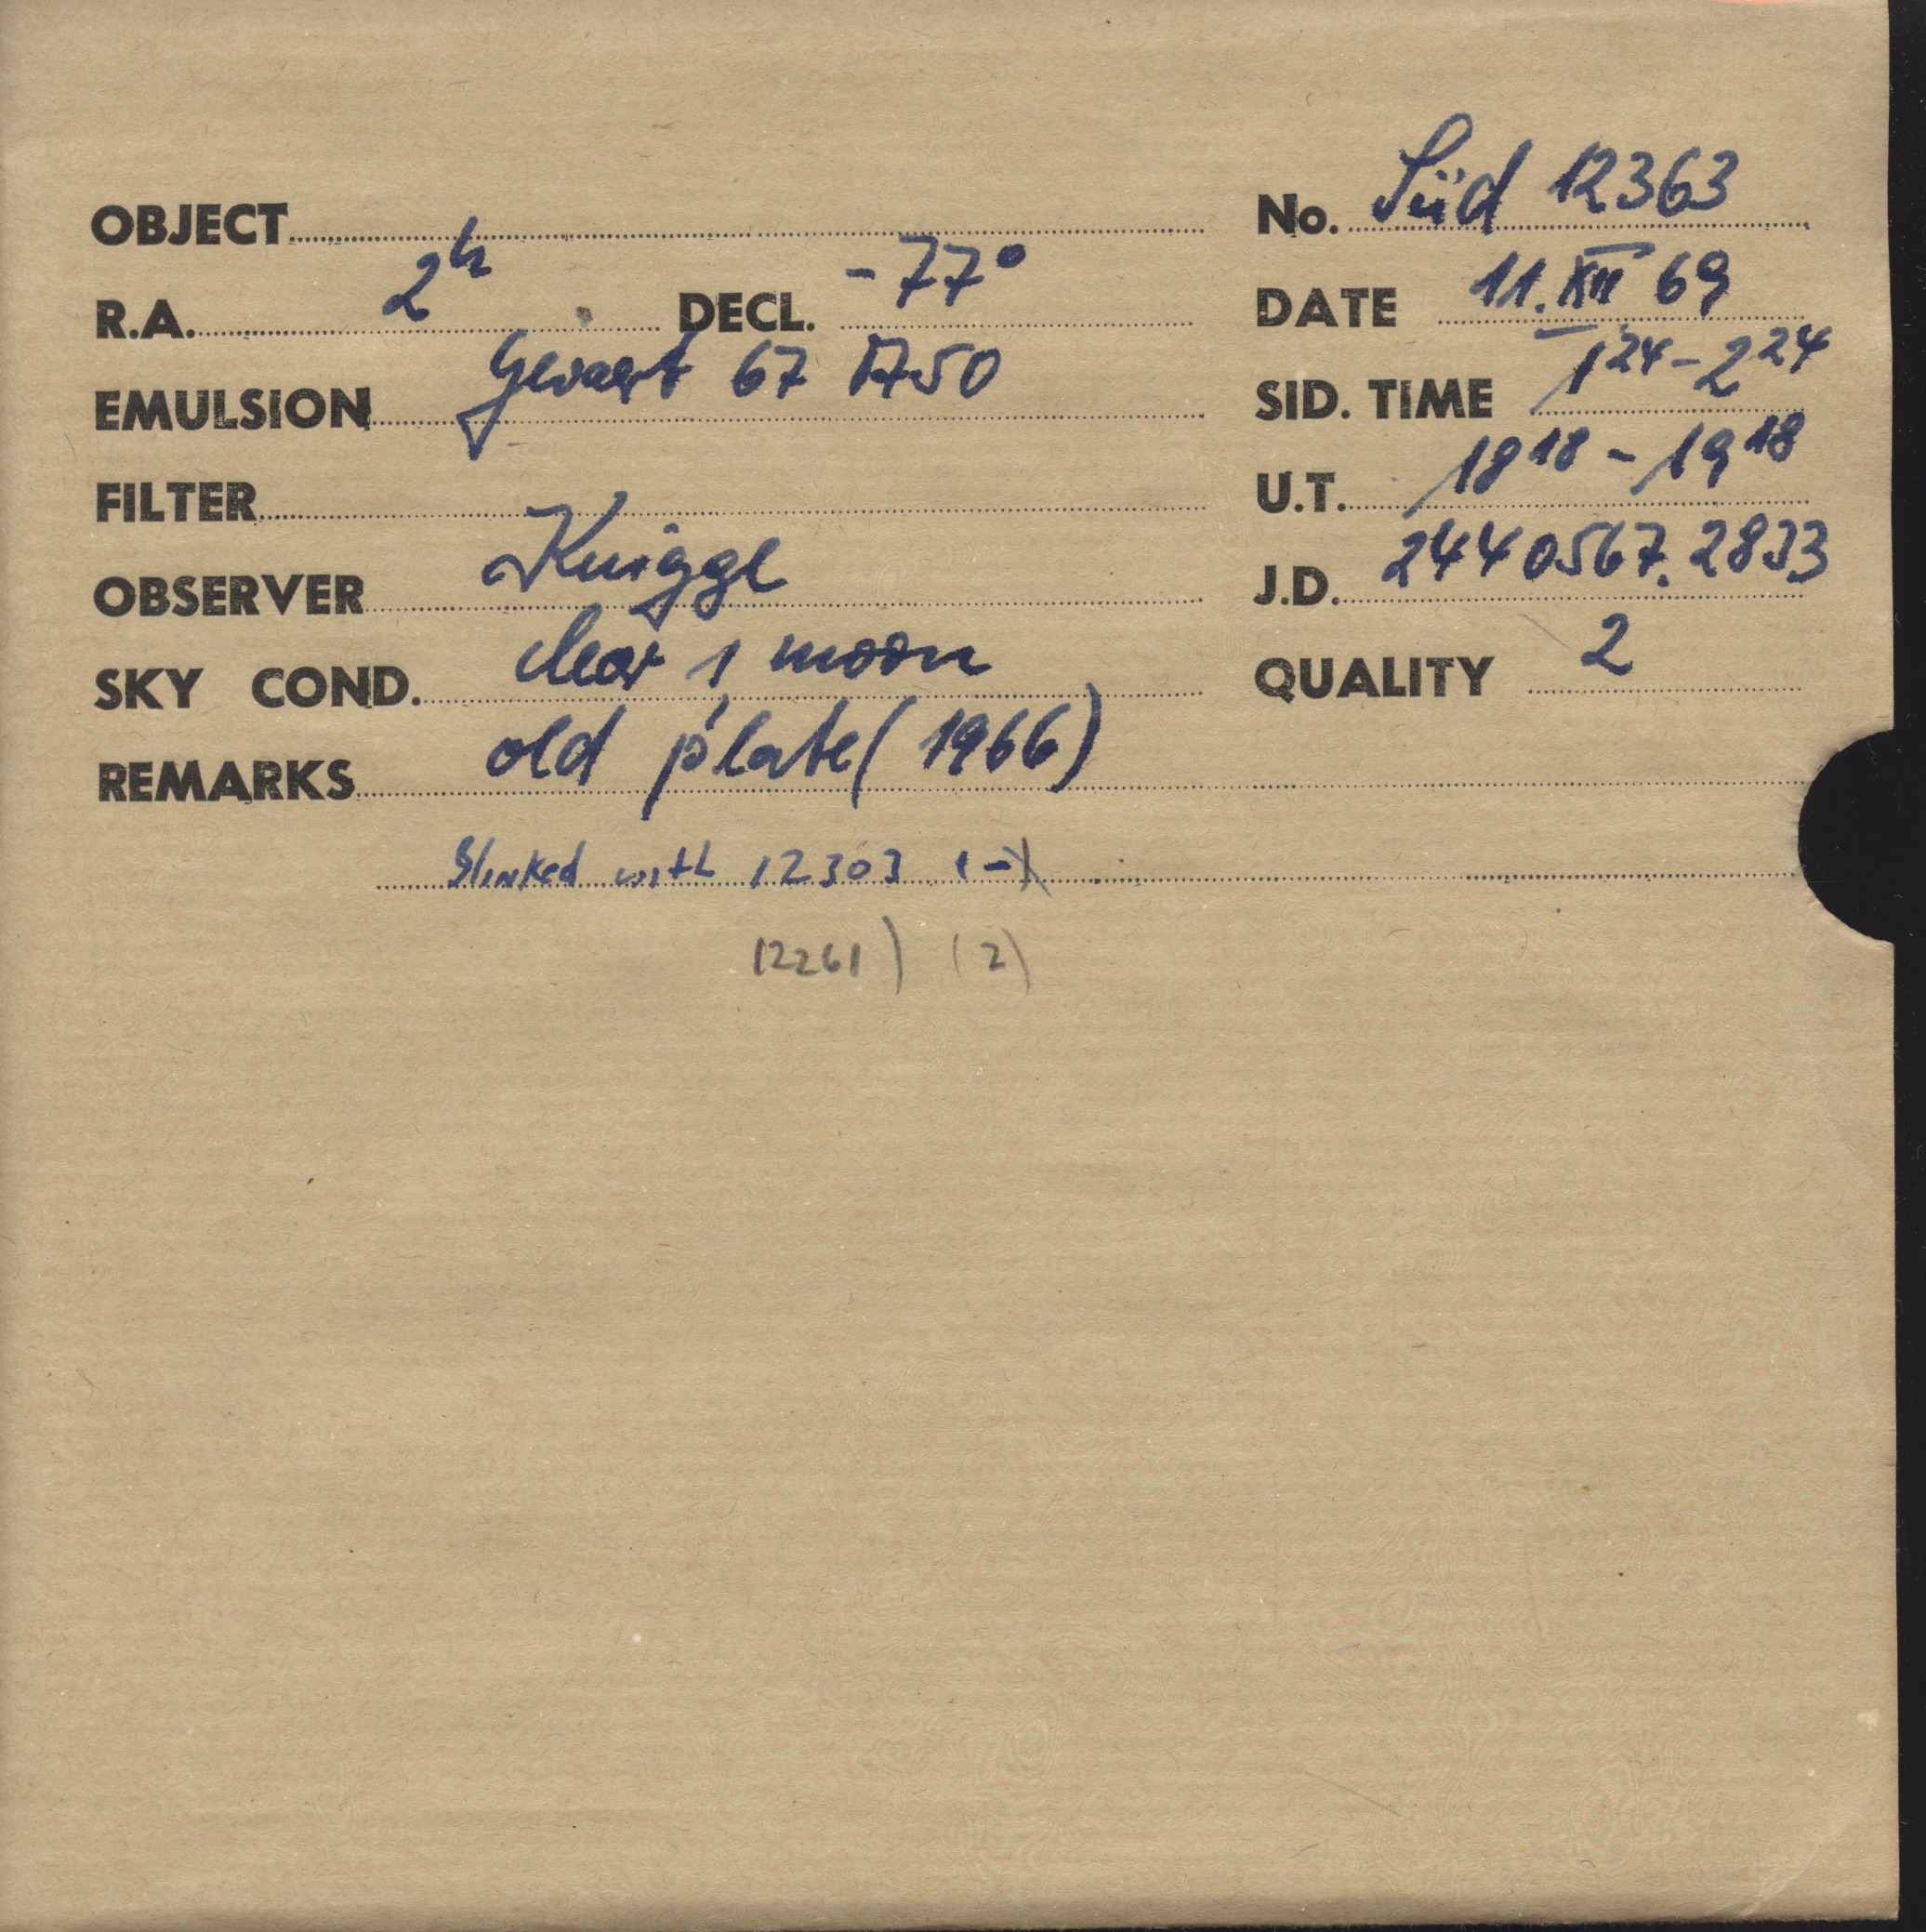 OBJECT
R.A. 2h DECL. -77°
EMULSION Gevaert 67 A50
FILTER
OBSERVER Knigge
SKY COND. clear, moon
REMARKS old plate (1966)
Blinked with 12303 (-)
12261) (2)
No. Süd 12363
DATE 11. XII 69
SID. TIME 1 24 - 2 24
U.T. 18 18 - 19 18
J.D. 2440567.2833
QUALITY 2